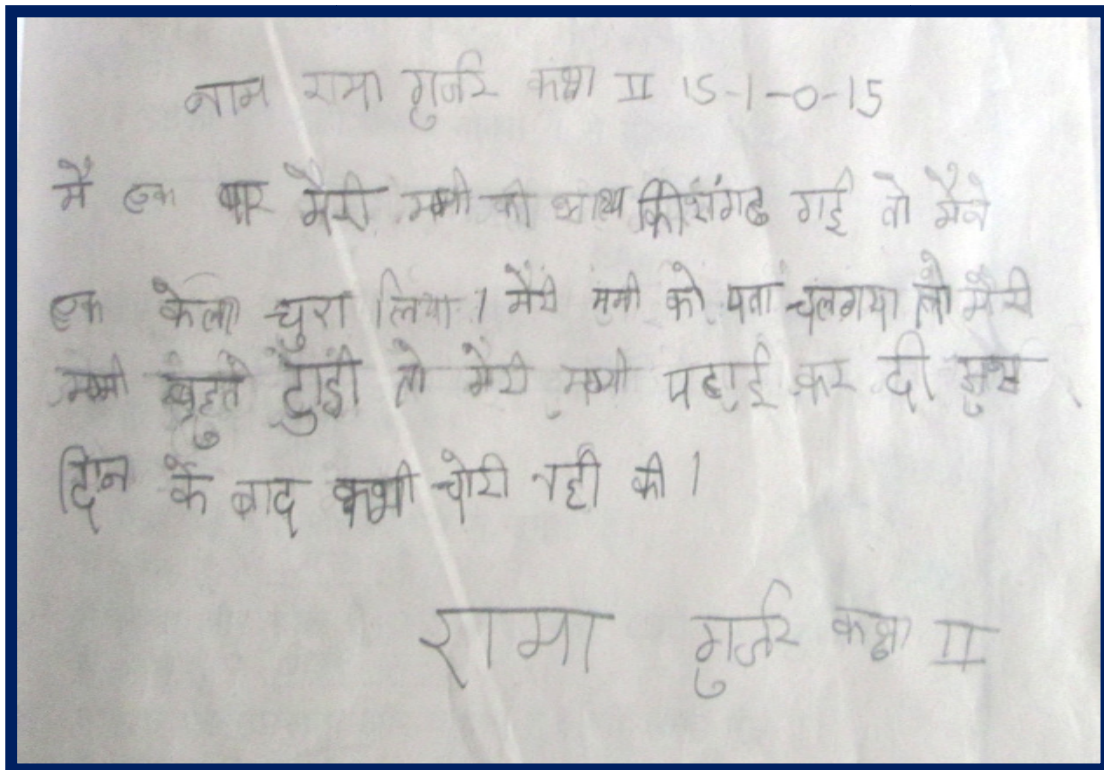 नाम रामा गुर्जर कक्षा II 15-1-0-15
मैं एक बार मैरी मम्मी की साथ किशंगढ गई तो मैने
एक केला चुरा लिया। मैरी ममी को पता चलगया तो मैरी
मम्मी बहुत डाडी तो मेरी मम्मी पढाई कर दी
दिन के बाद कभी चोरी नही की।
रामा गुर्जर कक्षा II